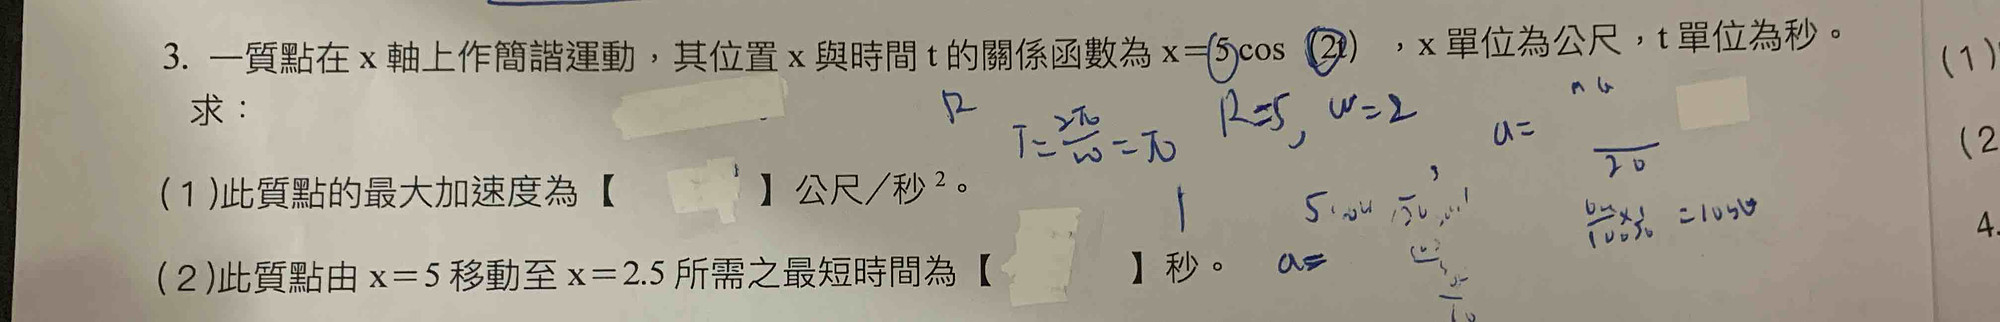 3. 一質點在 x 軸上作簡諧運動，其位置 x 與時間 t 的關係函數為 x＝5cos (2t) ，x 單位為公尺，t 單位為秒。
求：
R
T=2π/ω=π
R=5, w=2
a=
20
(１)此質點的最大加速度為【 】公尺／秒²。
(２)此質點由 x＝5 移動至 x＝2.5 所需之最短時間為【 】秒。
a=
(1)
(2
4.